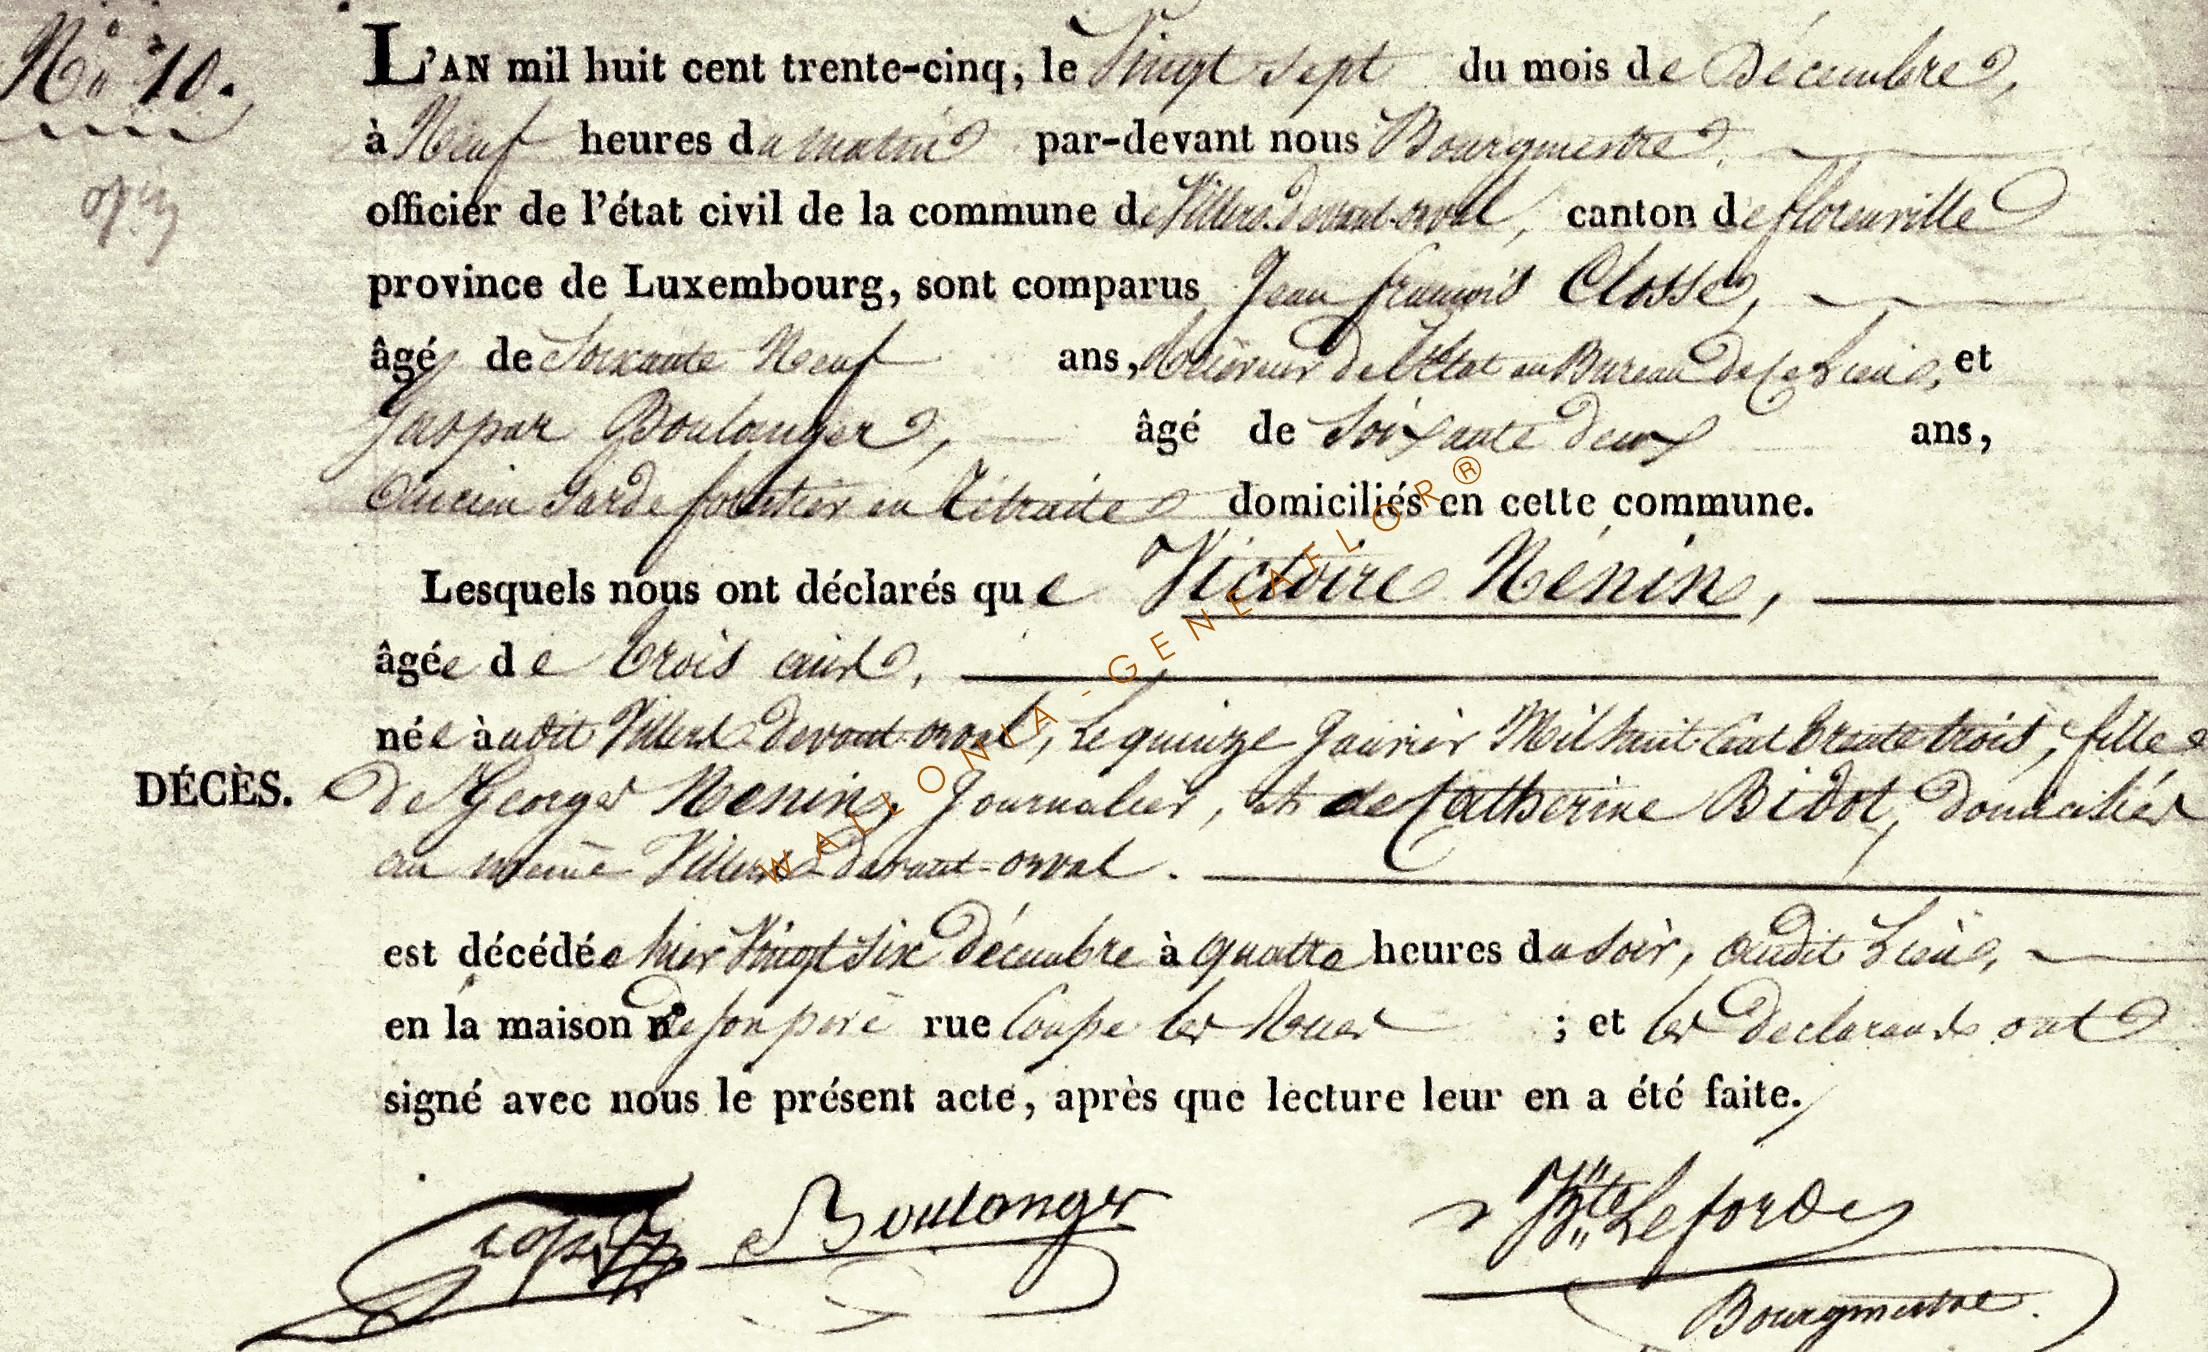 No 10.
L'AN mil huit cent trente-cinq, le Vingt sept du mois de Décembre,
à Neuf heures du matin par-devant nous Bourgmestre
officier de l'état civil de la commune de Villers-devant-orval, canton de florenville
province de Luxembourg, sont comparus Jean françois Closse,
âgé de Soixante Neuf ans, de l'Etat au Bureau de ce Lieu, et
Gaspar Boulanger, âgé de Soixante deux ans,
Ancien Garde forestier en Retraite domiciliés en cette commune.
Lesquels nous ont déclarés que Victoire Nénin,
âgée de trois ans,
née audit Villers devant-orval, Le quinze Janvier Mil huit Cent trente trois, fille
de George Nenin, Journalier, et de Catherine Bidot, domiciliés
au même Villers devant-orval.
DÉCÈS.
est décédée hier Vingt Six décembre à quatre heures du soir, audit Lieu,
en la maison n° de son père rue Coupe les Roues ; et les declarants ont
signé avec nous le présent acte, après que lecture leur en a été faite.
Boulanger
Lefordes
Bourgmestre.
WALLONIA-GENEAFLOR®